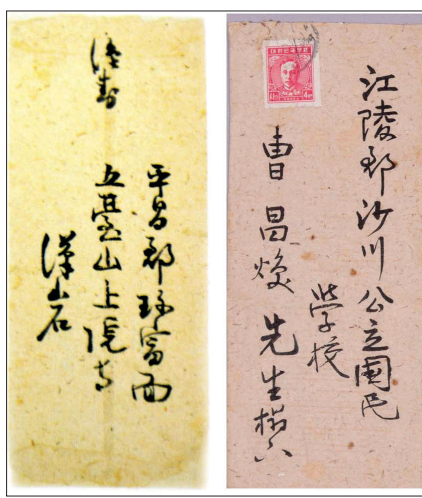 平昌郡珍富面
五臺山上院寺
漢岩
江陵郡沙川公立國民
學校
曺昌煥先生